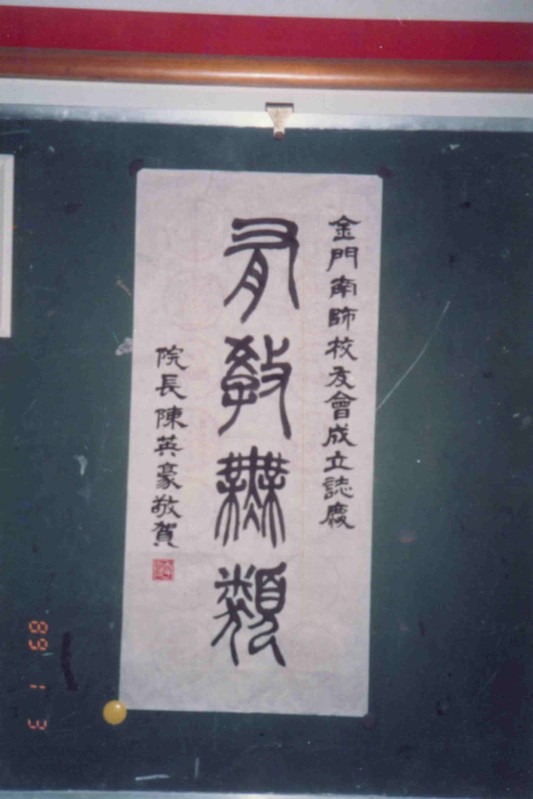 金門南師校友會成立誌慶
有教無類
院長陳英豪敬賀
89 1 3